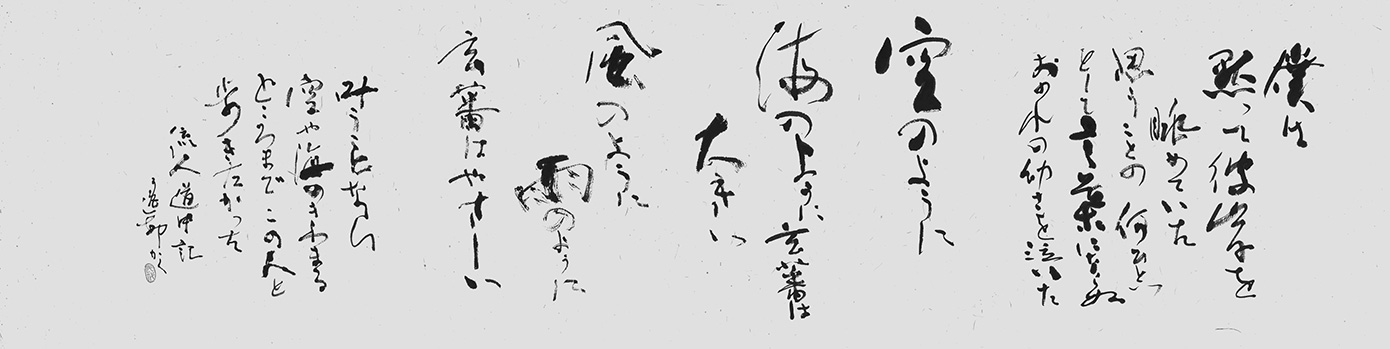 僕は
黙って彼岸を
眺めていた
思うことの何ひとつ
として言葉にならぬ
おのれの幼さを泣いた
空のように
海のように玄蕃は
大きい
風のように
雨のように
玄蕃はやさしい
空や海のきわまる
ところまでこの人と
歩きたかった
流人道中記